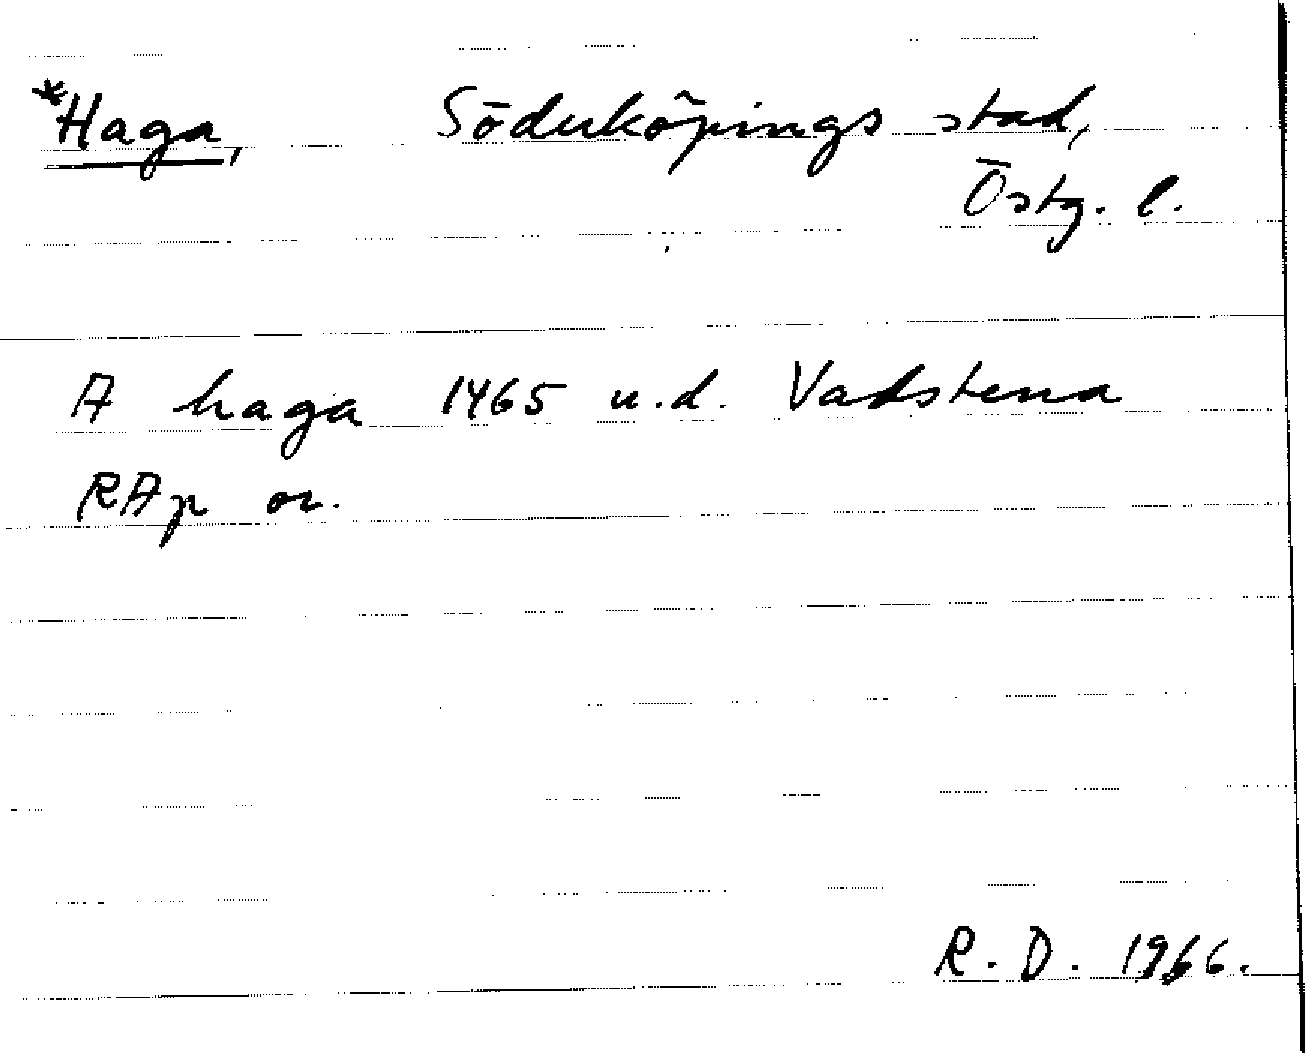 *Haga, Söderköpings stad,
Östg. l.
A haga 1465 u.d. Vadstena
RAp or.
R. D. 1966.